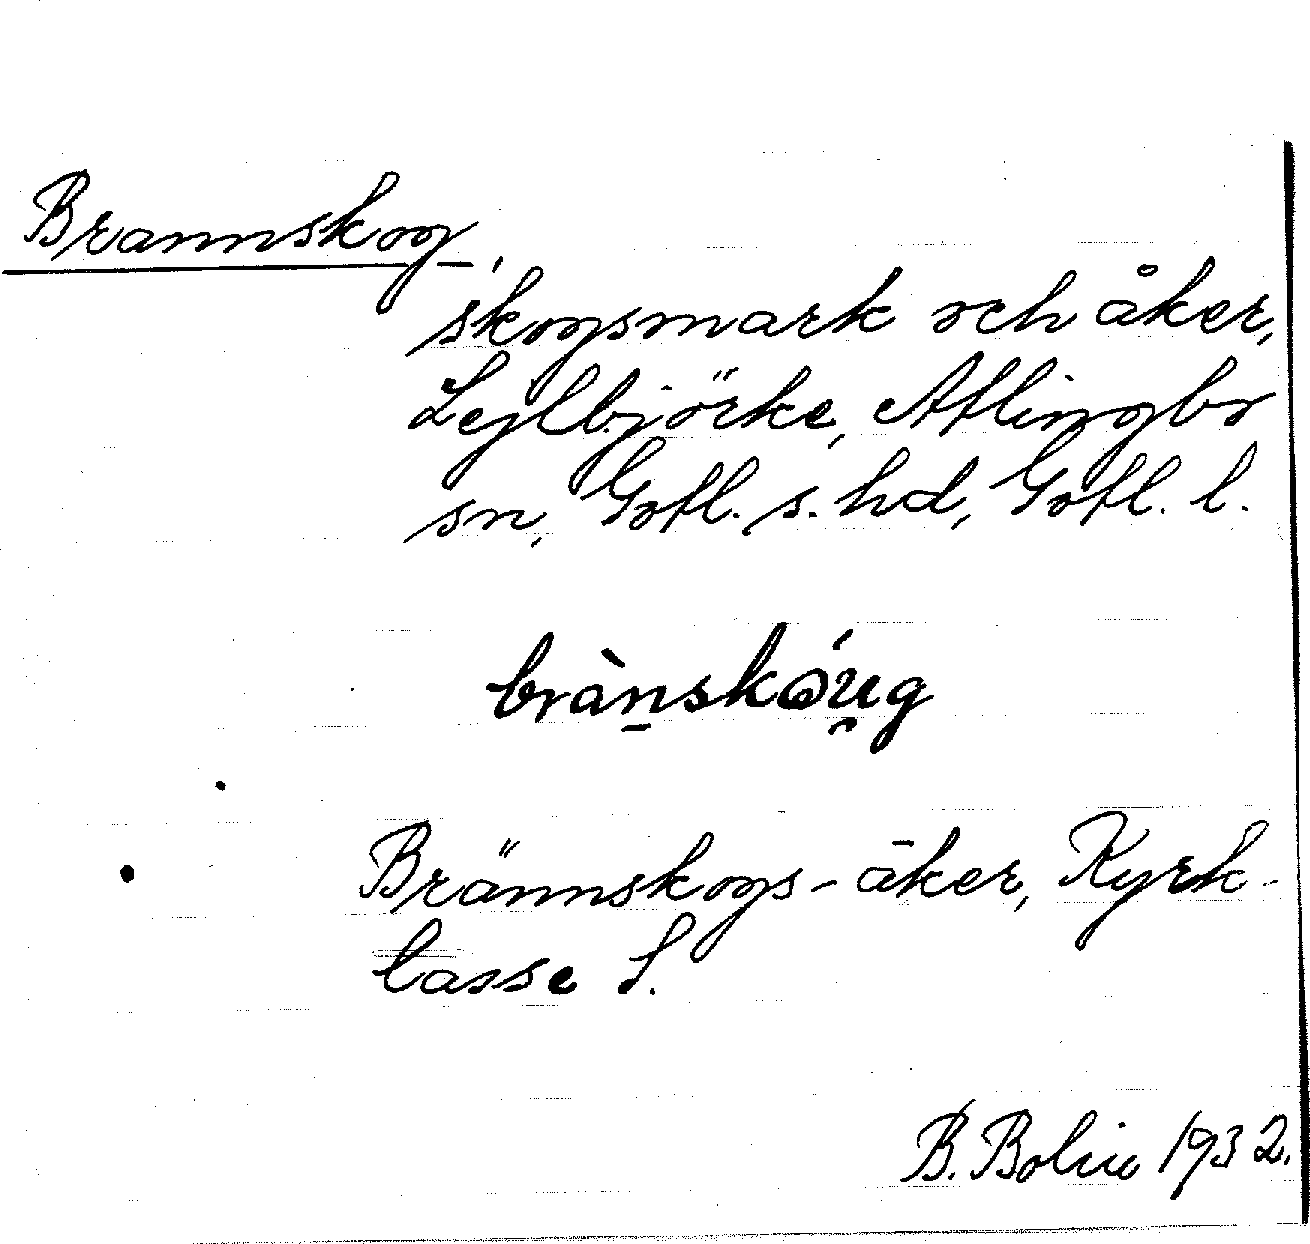 Brannskog,
skogsmark och åker,
Lejlbjörke, Atlingbo
sn, Gotl. s. hd, Gotl. l.
bràn̠skǻu̯g
Brännskogs-åker, Kyrk-
lasse S.
B. Bolin 1932.